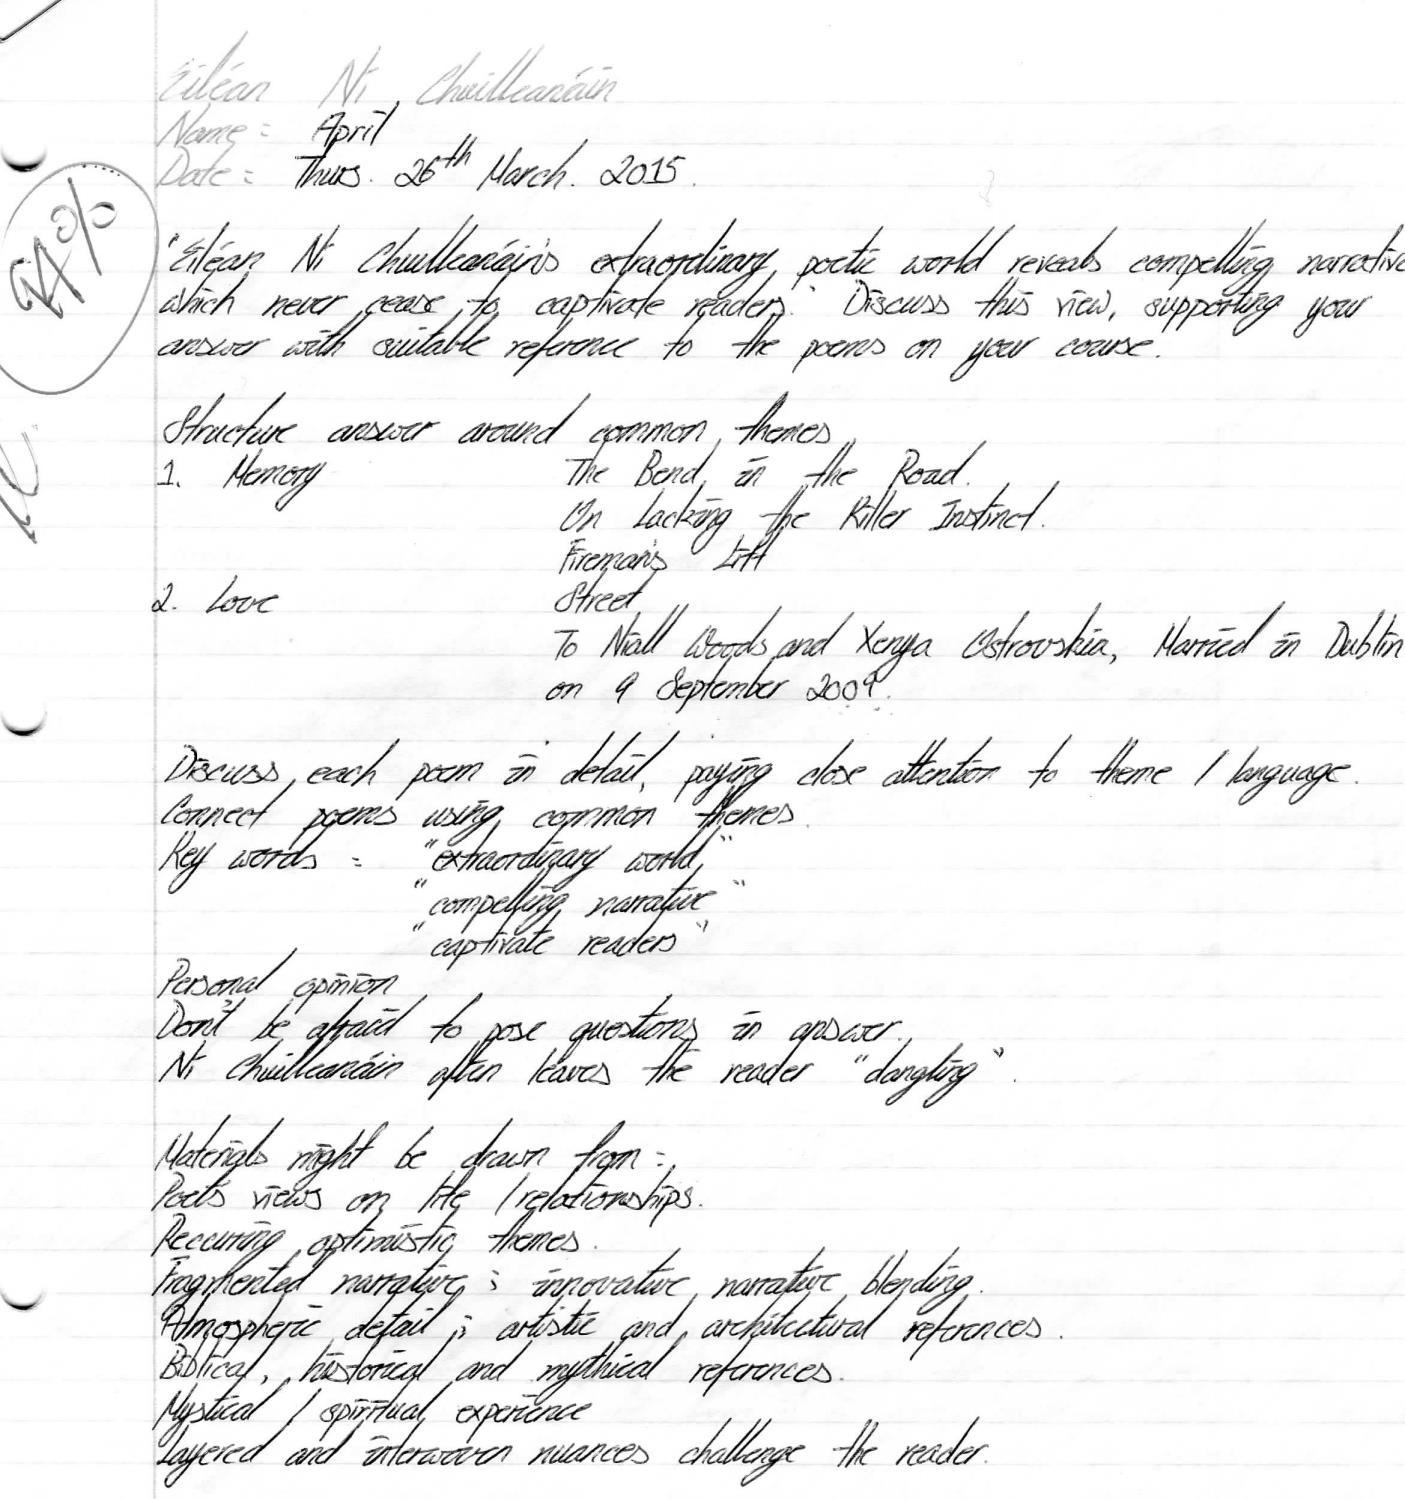 Eiléan Ní Chuilleanáin
Name: April
Date: Thurs. 26th March. 2015.
"Eiléan Ní Chuilleanáin's extraordinary poetic world reveals compelling narrative
which never cease to captivate readers." Discuss this view, supporting your
answer with suitable reference to the poems on your course.
Structure answer around common themes
1. Memory The Bend in the Road.
On Lacking the Killer Instinct.
Fireman's Lift
2. Love Street
To Niall Woods and Xenya Ostrovskia, Married in Dublin
on 9 September 2009.
Discuss each poem in detail, paying close attention to theme / language.
Connect poems using common themes.
Key words: "extraordinary world"
"compelling narrative"
"captivate readers"
Personal opinion
Don't be afraid to pose questions in answer.
Ní Chuilleanáin often leaves the reader "dangling".
Materials might be drawn from:
Poet's views on life / relationships.
Reccuring optimistic themes.
Fragmented narrative; innovative narrative blending.
Atmospheric detail; artistic and architectural references.
Biblical, historical and mythical references.
Mystical / spiritual experience
Layered and interwoven nuances challenge the reader.